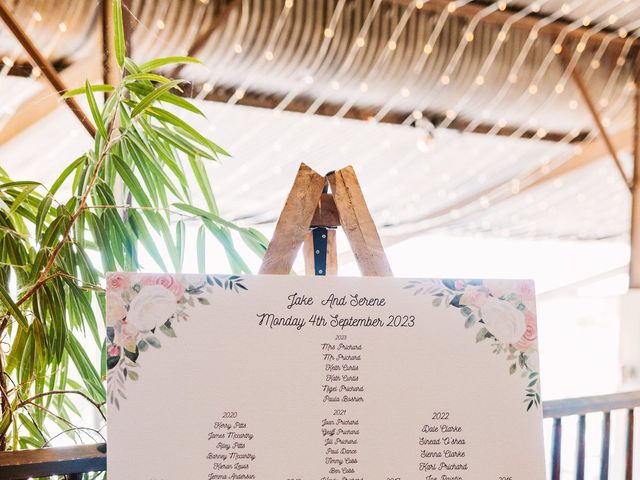 Jake And Serene
Monday 4th September 2023
2023
Mrs Prichard
Mr Prichard
Keith Curtis
Kath Curtis
Nigel Prichard
Paula Boshier
2020
Kerry Patts
James Mccarthy
Riley Patts
Barney Mccarthy
Kieran Lewis
Jemma Anderson
2021
Joan Prichard
Geoff Prichard
Jill Prichard
Paul Dance
Timmy Cobb
Ben Cobb
2022
Dale Clarke
Sinead O'shea
Sienna Clarke
Karl Prichard